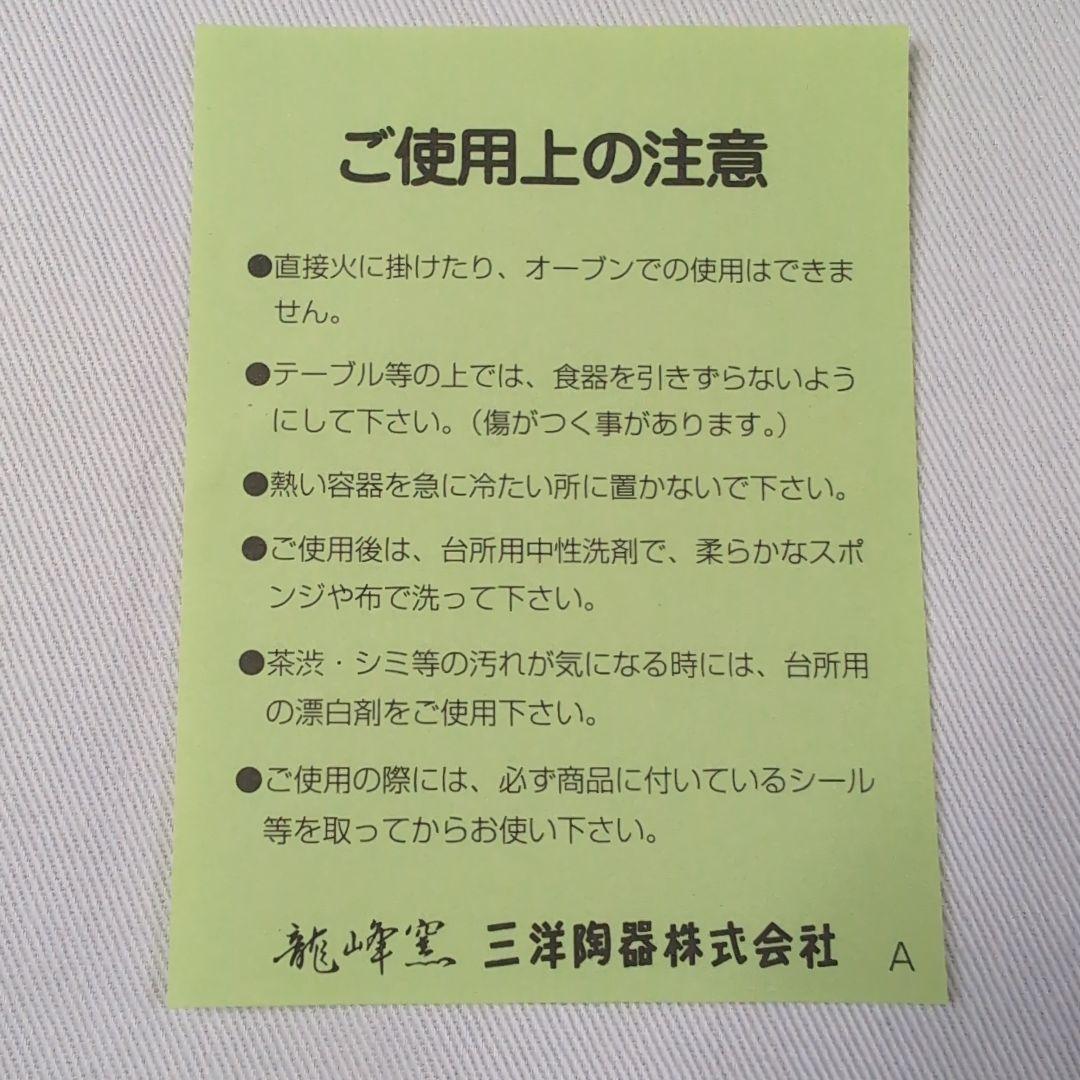 ご使用上の注意
●直接火に掛けたり、オーブンでの使用はできま
せん。
●テーブル等の上では、食器を引きずらないよう
にして下さい。(傷がつく事があります。)
●熱い容器を急に冷たい所に置かないで下さい。
●ご使用後は、台所用中性洗剤で、柔らかなスポ
ンジや布で洗って下さい。
●茶渋・シミ等の汚れが気になる時には、台所用
の漂白剤をご使用下さい。
●ご使用の際には、必ず商品に付いているシール
等を取ってからお使い下さい。
龍峰窯 三洋陶器株式会社 A